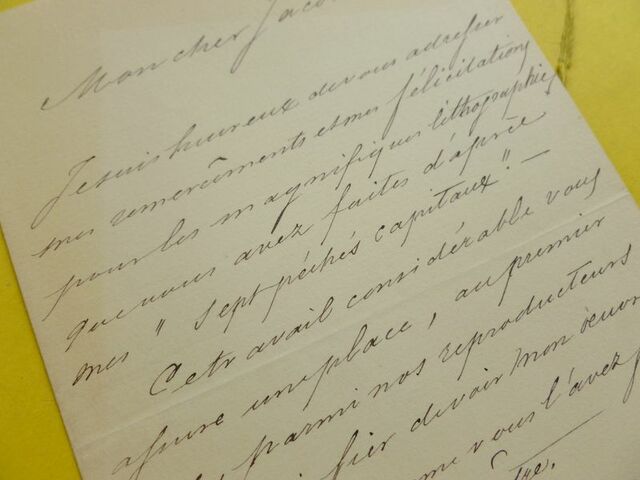 Mon cher
Je suis heureux de vous adresser
mes remercîments et mes félicitations
pour les magnifiques lithographies
que vous avez faites d'après
mes " Sept péchés capitaux". —
Ce travail considérable vous
assure une place, au premier
parmi nos reproducteurs
fier de voir mon œuvre
me vous l'avez